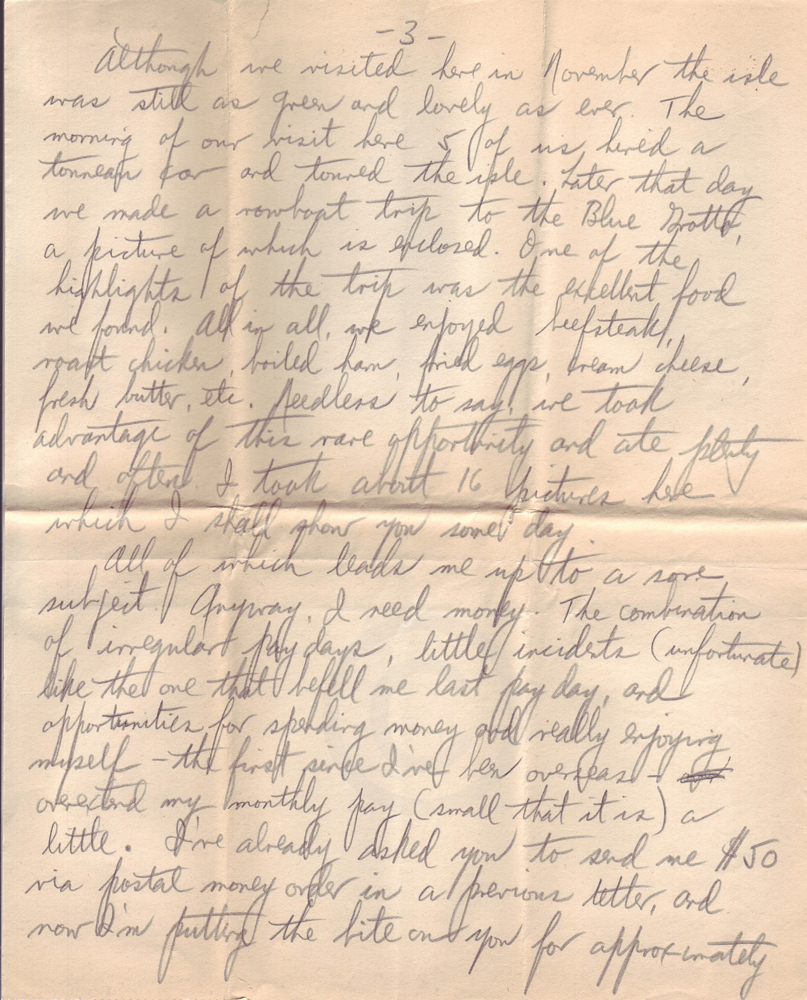 -3-
Although we visited here in November the isle
was still as green and lovely as ever. The
morning of our visit here 5 of us hired a
tonneau car and toured the isle. Later that day
we made a rowboat trip to the Blue Grotto,
a picture of which is enclosed. One of the
highlights of the trip was the excellent food
we found. All in all, we enjoyed beefsteak,
roast chicken, boiled ham, fried eggs, cream cheese,
fresh butter, etc. Needless to say, we took
advantage of this rare opportunity and ate plenty
and often. I took about 16 pictures here
which I shall show you some day.
All of which leads me up to a sore
subject. Anyway, I need money. The combination
of irregular pay days, little incidents (unfortunate)
like the one that befell me last pay day, and
opportunities for spending money and really enjoying
myself - the first since I've been overseas -
overextend my monthly pay (small that it is) a
little. I've already asked you to send me $50
via postal money order in a previous letter, and
now I'm putting the bite on you for approximately